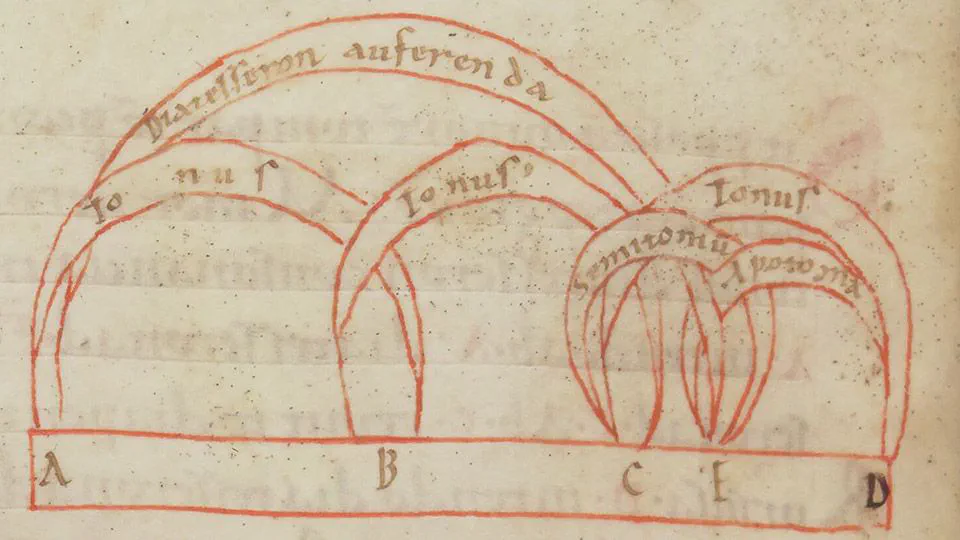 Diatesseron auferenda
Tonus
Tonus
Tonus
Semitoniū
Apotome
A B C E D